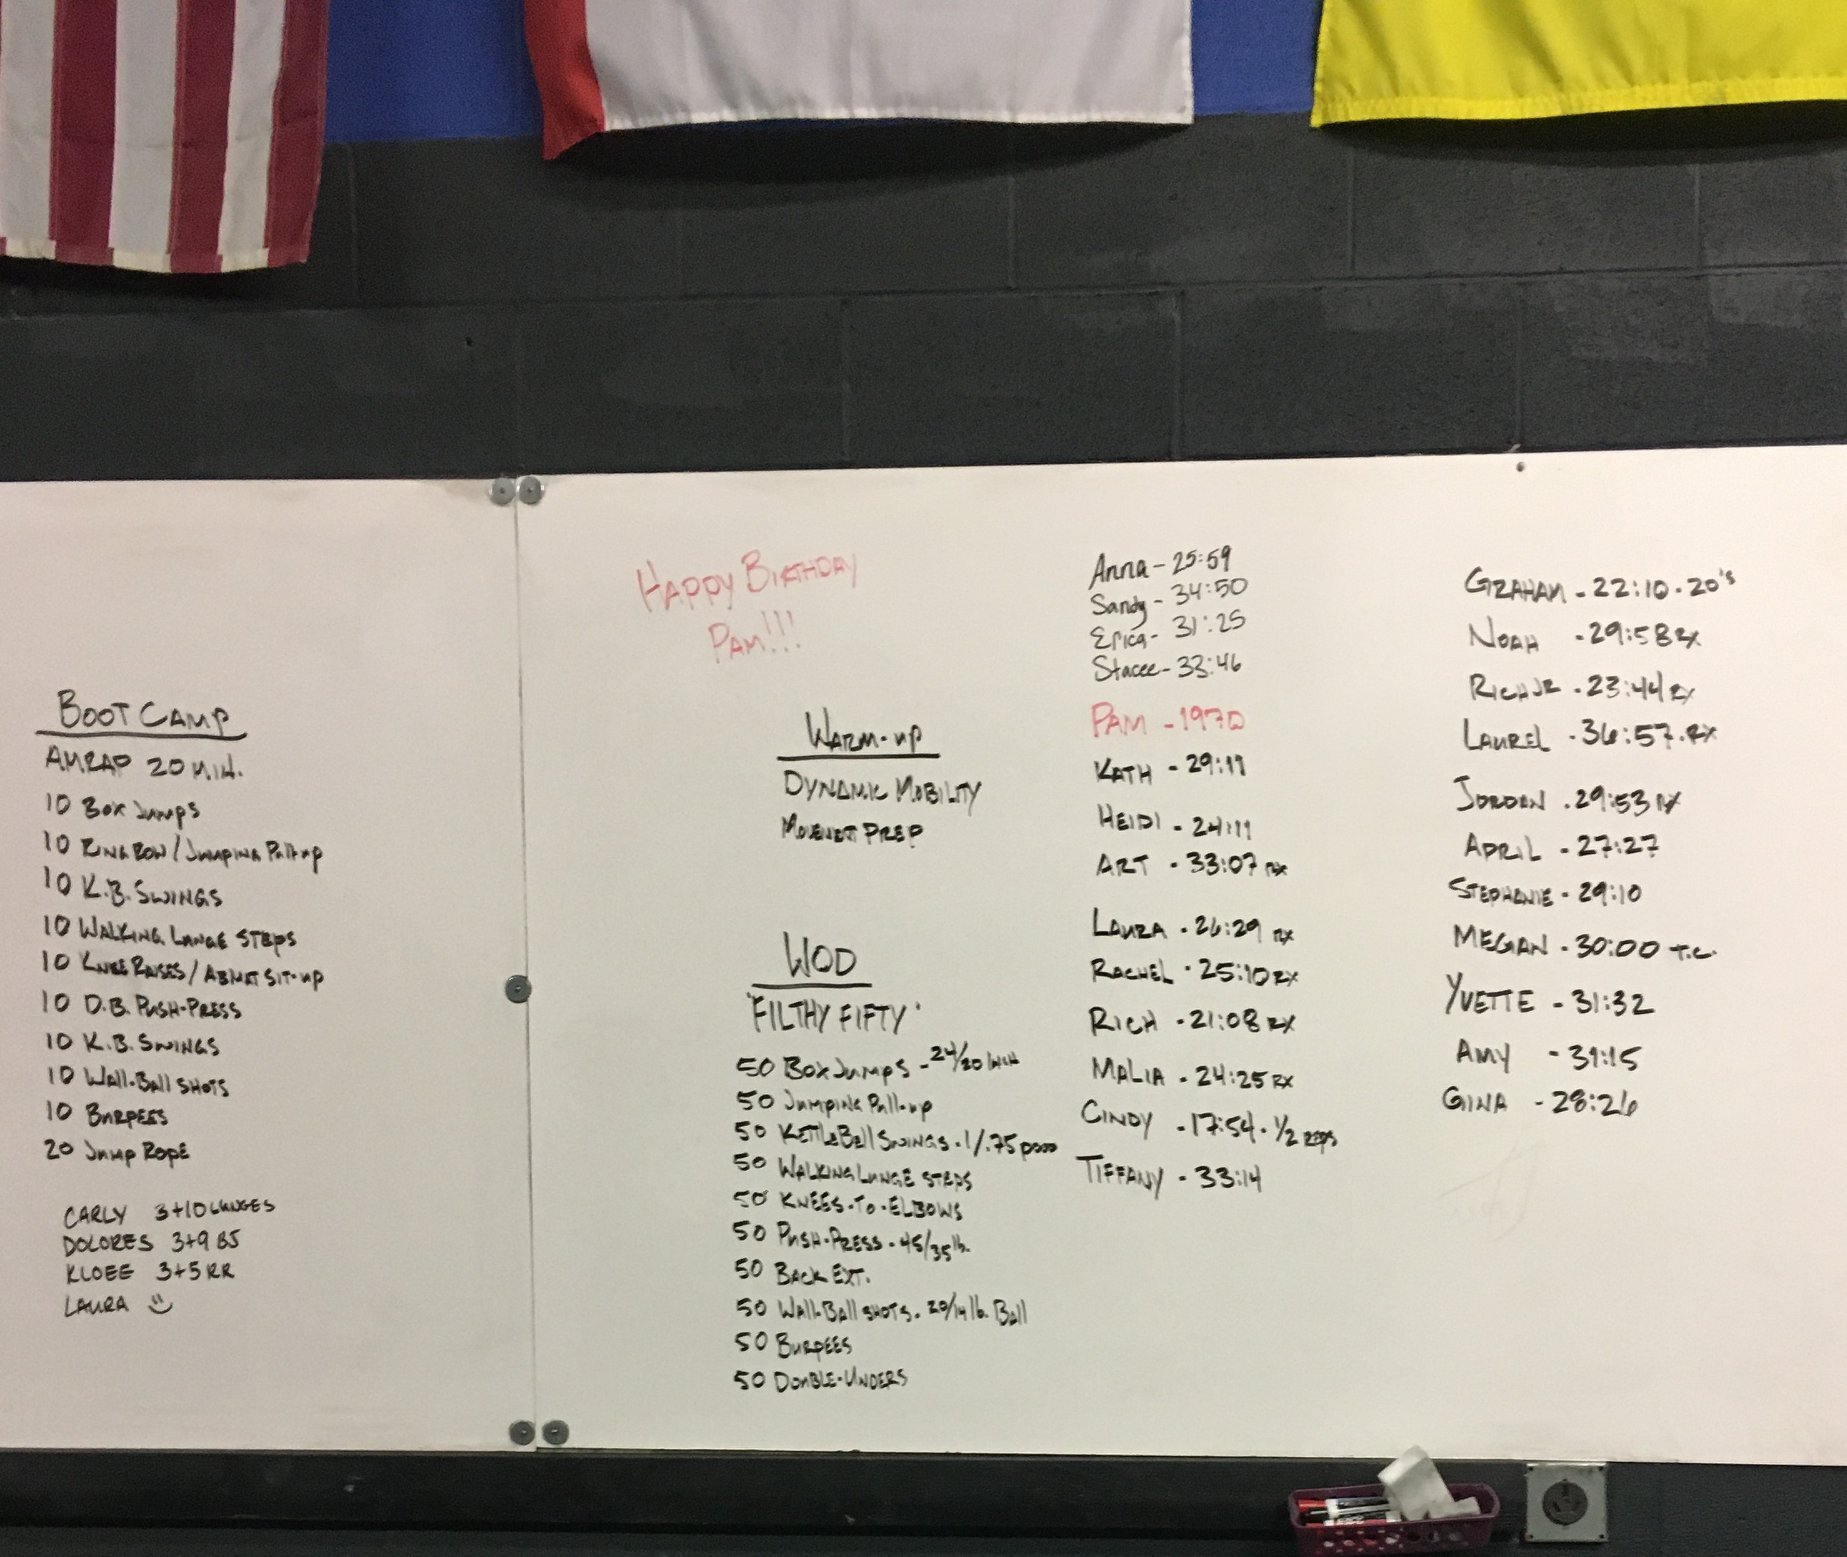 BOOT CAMP
AMRAP 20 MIN.
10 BOX JUMPS
10 RING ROW / JUMPING PULL-UP
10 K.B. SWINGS
10 WALKING LUNGE STEPS
10 KNEE RAISES / ABMAT SIT-UP
10 D.B. PUSH-PRESS
10 K.B. SWINGS
10 WALL-BALL SHOTS
10 BURPEES
20 JUMP ROPE
CARLY 3+10 LUNGES
DOLORES 3+9 BJ
KLOEE 3+5 RR
LAURA
HAPPY BIRTHDAY
PAM!!!
WARM-UP
DYNAMIC MOBILITY
MOVEMENT PREP
WOD
"FILTHY FIFTY"
50 BOX JUMPS - 24/20 INCH
50 JUMPING PULL-UP
50 KETTLEBELL SWINGS - 1/.75 POOD
50 WALKING LUNGE STEPS
50 KNEES-TO-ELBOWS
50 PUSH-PRESS - 45/35 lb.
50 BACK EXT.
50 WALL-BALL SHOTS - 20/14 lb. BALL
50 BURPEES
50 DOUBLE-UNDERS
Anna - 25:59
Sandy - 34:50
Erica - 31:25
Stacee - 33:46
PAM - 1970
KATH - 29:11
HEIDI - 24:11
ART - 33:07 RX
LAURA - 26:29 RX
RACHEL - 25:10 RX
RICH - 21:08 RX
MALIA - 24:25 RX
CINDY - 17:54 - 1/2 REPS
TIFFANY - 33:14
GRAHAM - 22:10 - 20's
NOAH - 29:58 RX
RICH JR - 23:44 RX
LAUREL - 36:57 - RX
JORDAN - 29:53 RX
APRIL - 27:27
STEPHANIE - 29:10
MEGAN - 30:00 T.C.
YVETTE - 31:32
AMY - 31:15
GINA - 28:26